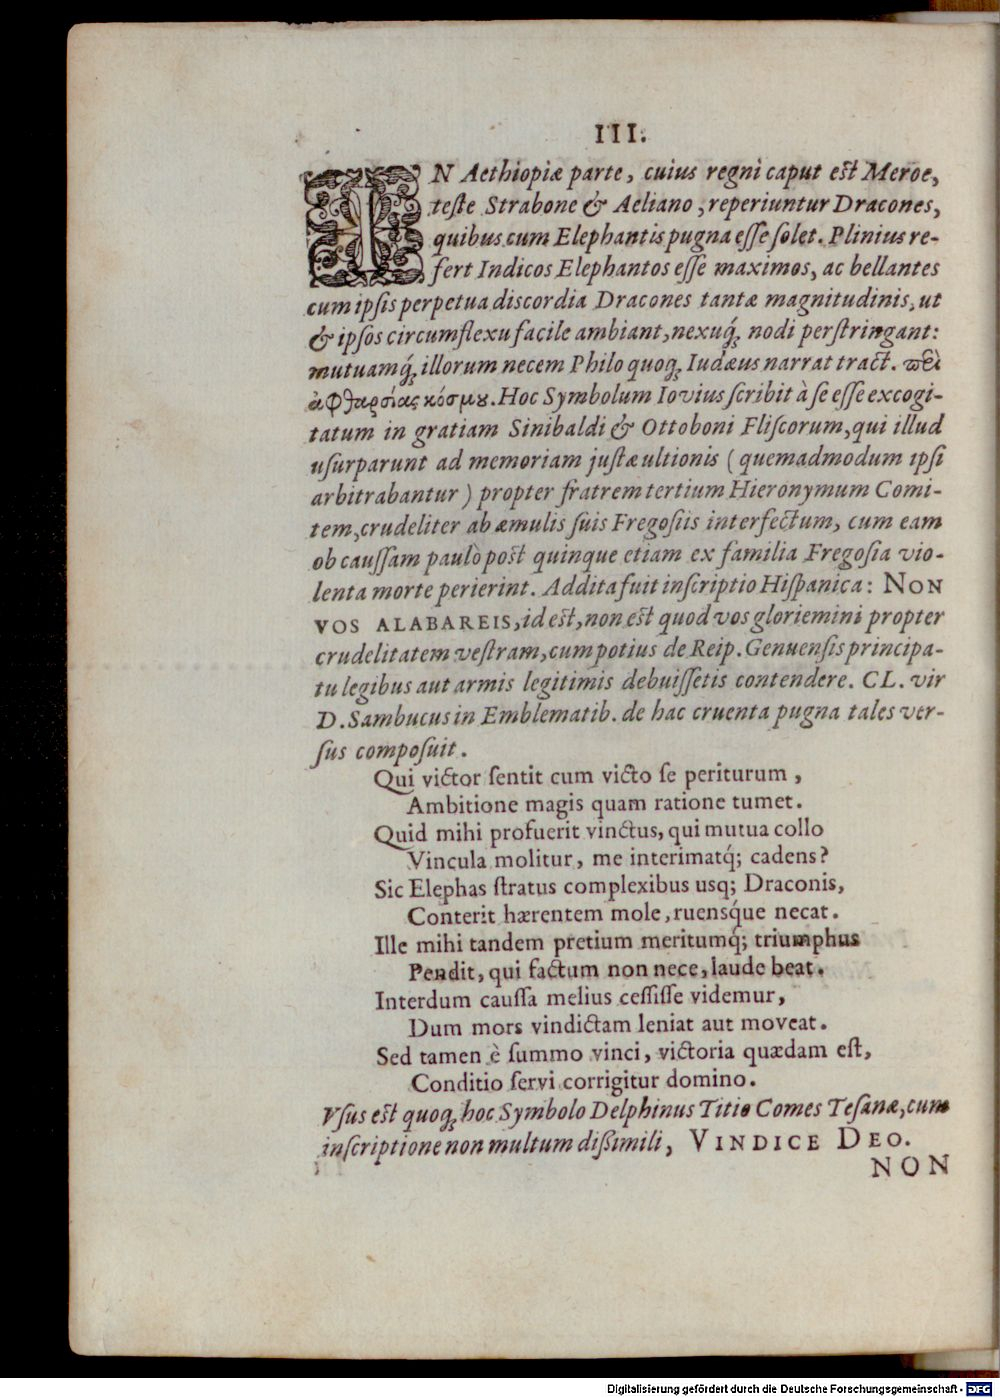 III.
IN Aethiopiæ parte, cuius regni caput est Meroe,
teste Strabone & Aeliano, reperiuntur Dracones,
quibus cum Elephantis pugna eſſe ſolet. Plinius re-
fert Indicos Elephantos eſſe maximos, ac bellantes
cum ipſis perpetua discordia Dracones tantæ magnitudinis, ut
& ipſos circumflexu facile ambiant, nexuq́ꝫ nodi perſtringant:
mutuamq́ꝫ illorum necem Philo quoqꝫ Iudæus narrat tract. πεὶ
ἀφθαρσίας κόσμȣ. Hoc Symbolum Iovius ſcribit à ſe eſſe excogi-
tatum in gratiam Sinibaldi & Ottoboni Fliſcorum, qui illud
uſurparunt ad memoriam juſtæ ultionis (quemadmodum ipſi
arbitrabantur) propter fratrem tertium Hieronymum Comi-
tem, crudeliter ab æmulis ſuis Fregoſiis interfectum, cum eam
ob cauſſam paulò post quinque etiam ex familia Fregoſia vio-
lenta morte perierint. Addita fuit inſcriptio Hiſpanica: NON
VOS ALABAREIS, id est, non est quod vos gloriemini propter
crudelitatem veſtram, cum potius de Reip. Genuenſis principa-
tu legibus aut armis legitimis debuiſſetis contendere. CL. vir
D. Sambucus in Emblematib. de hac cruenta pugna tales ver-
ſus compoſuit.
Qui victor ſentit cum victo ſe periturum,
Ambitione magis quam ratione tumet.
Quid mihi profuerit vinctus, qui mutua collo
Vincula molitur, me interimatq́; cadens?
Sic Elephas ſtratus complexibus usq; Draconis,
Conterit hærentem mole, ruensq́ue necat.
Ille mihi tandem pretium meritumq́; triumphus
Pendit, qui factum non nece, laude beat.
Interdum cauſſa melius ceſſiſſe videmur,
Dum mors vindictam leniat aut moveat.
Sed tamen è ſummo vinci, victoria quædam eſt,
Conditio ſervi corrigitur domino.
Vſus est quoqꝫ hoc Symbolo Delphinus Titio Comes Teſanæ, cum
inſcriptione non multum diſſimili, VINDICE DEO.
NON
Digitalisierung gefördert durch die Deutsche Forschungsgemeinschaft - DFG